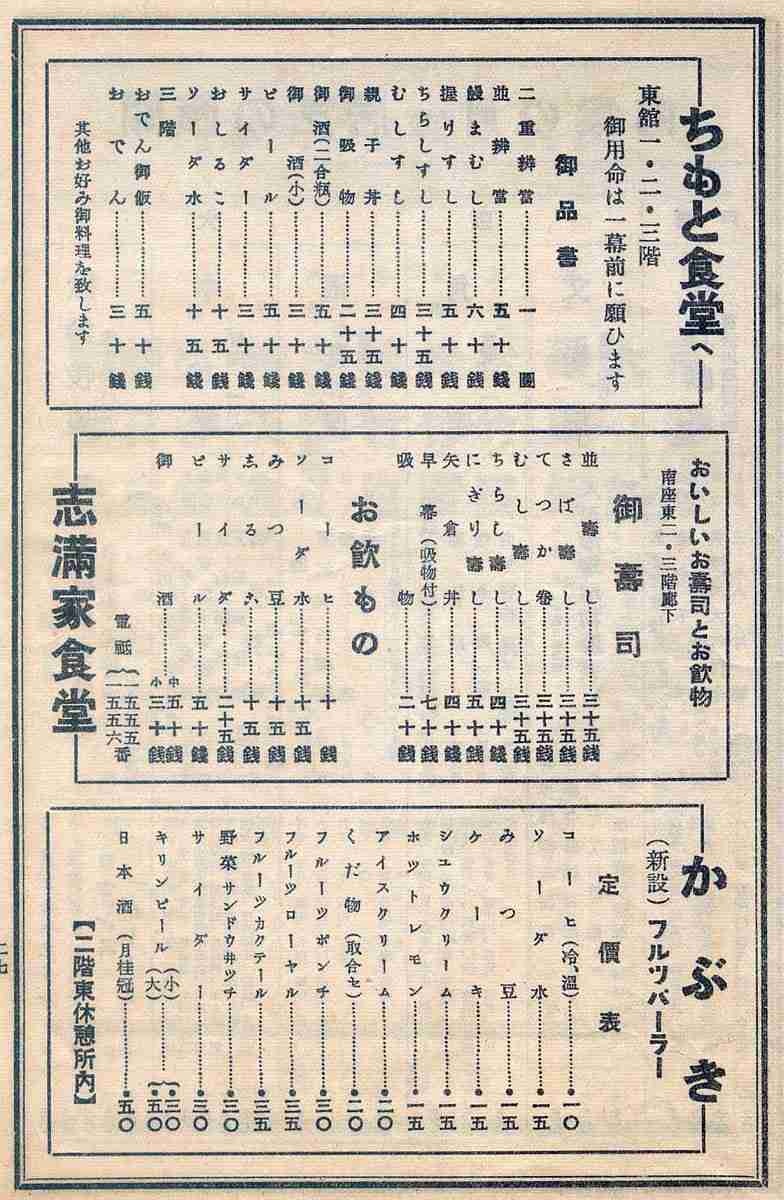 ちもと食堂へ
東舘一・二・三階
御用命は一幕前に願ひます
御品書
二重辨當……一圓
並辨當……五十錢
鰻まむし……六十錢
握りすし……五十錢
ちらしすし……三十五錢
むしすし……四十錢
親子丼……三十五錢
御吸物……二十五錢
御酒(二合瓶)……五十錢
御酒(小)……三十錢
ビール……五十錢
サイダー……三十錢
おしるこ……十五錢
ソーダ水……十五錢
三階
おでん御飯……五十錢
おでん……三十錢
其他お好み御料理を致します
おいしいお壽司とお飮物
南座東二・三階廊下
御壽司
並壽し……三十五錢
さば壽し……三十五錢
てつか卷……三十五錢
むし壽し……三十五錢
ちらし壽し……四十錢
にぎり壽し……五十錢
矢倉丼……四十錢
早幕(吸物付)……七十錢
吸物……二十錢
お飮もの
コーヒ……十錢
ソーダ水……十五錢
みつ豆……十五錢
志るこ……十五錢
サイダー……二十五錢
ビール……五十錢
御酒……中五十錢
小三十錢
電祗{一五五五
一五五六番
志滿家食堂
かぶき
(新設)フルツパーラー
定價表
コーヒ(冷、溫)……・一〇
ソーダ水……・一五
みつ豆……・一五
ケーキ……・一五
シユウクリーム……・一五
ホツトレモン……・一五
アイスクリーム……・二〇
くだ物(取合セ)……・二〇
フルーツポンチ……・三〇
フルーツローヤル……・三五
フルーツカクテール……・三五
野菜サンドウ井ツチ……・三〇
サイダー……・三〇
キリンビール(小)……・三〇
(大)……・五〇
日本酒(月桂冠)……・五〇
【二階東休憩所内】
二七